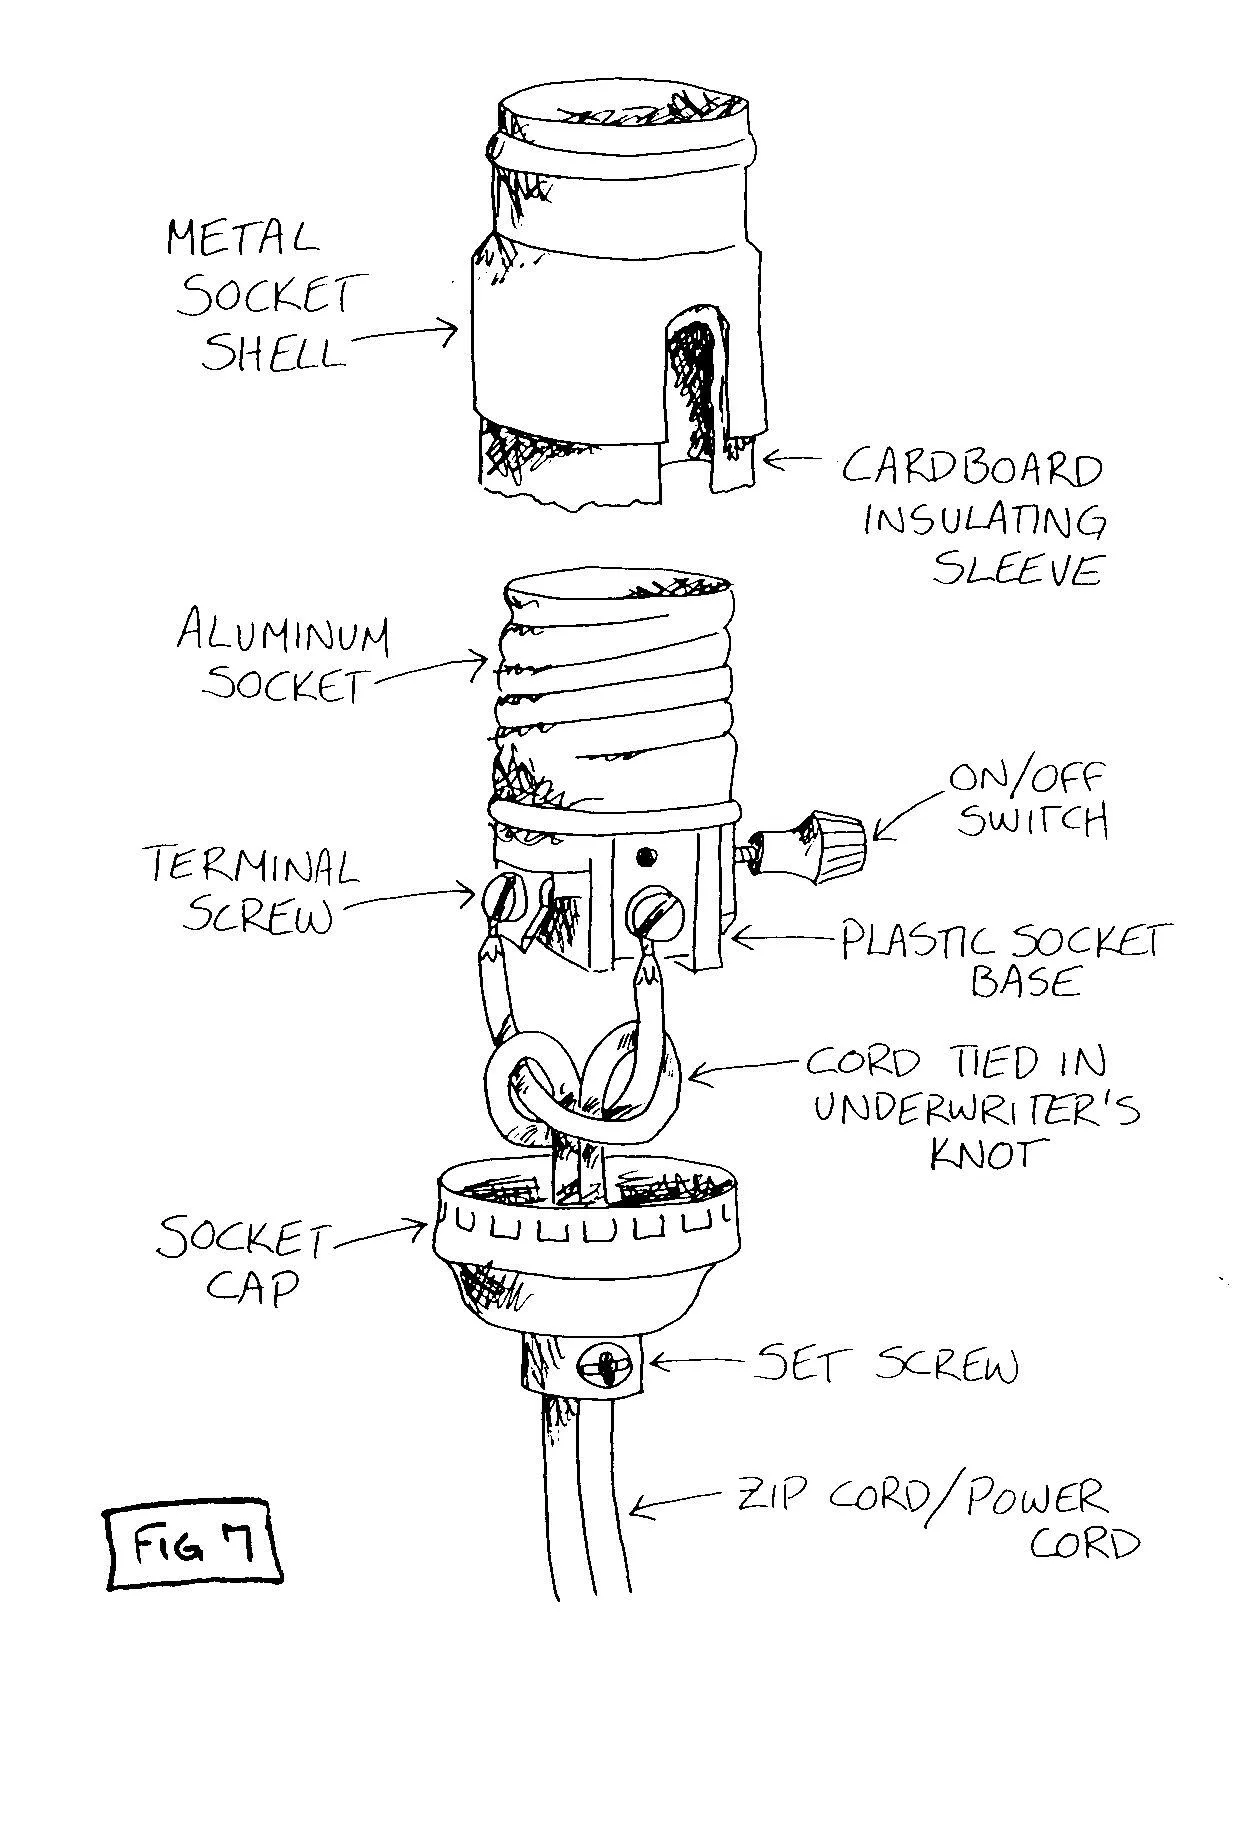 METAL
SOCKET
SHELL
CARDBOARD
INSULATING
SLEEVE
ALUMINUM
SOCKET
ON/OFF
SWITCH
TERMINAL
SCREW
PLASTIC SOCKET
BASE
CORD TIED IN
UNDERWRITER'S
KNOT
SOCKET
CAP
SET SCREW
ZIP CORD/POWER
CORD
FIG 7